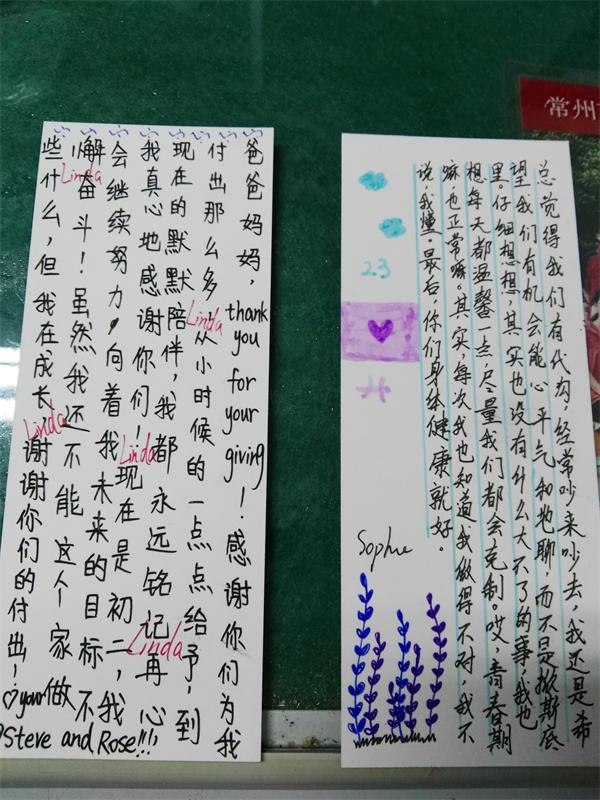 爸爸妈妈，thank you for your giving！感谢你们为我
付出那么多，从小时候的一点点给予，到
现在的默默陪伴，我都永远铭记再心!!!
我真心地感谢你们！现在是初二，我
会继续努力，向着我未来的目标不
懈奋斗！虽然我还不能这个家做
些什么，但我在成长，谢谢你们的付出！♡your
Steve and Rose!!!
Linda
Linda
Linda
Linda
Linda
总觉得我们有代沟，经常吵来吵去，我还是希
望我们有机会能心平气和地聊，而不是撕斯底
里。仔细想想，其实也没有什么大不了的事，我也
想每天都温馨一点，尽量我们都会克制。哎，青春期
嘛，也正常嘛。其实每次我也知道我做得不对，我不
说，我懂。最后，你们身体健康就好。
23
Sophie
常州